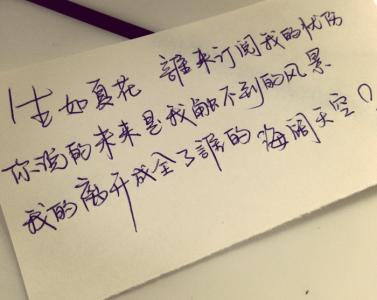 生如夏花 誰来订阅我的忧伤
你说的未来是我触不到的风景
我的离开成全了誰的海阔天空？